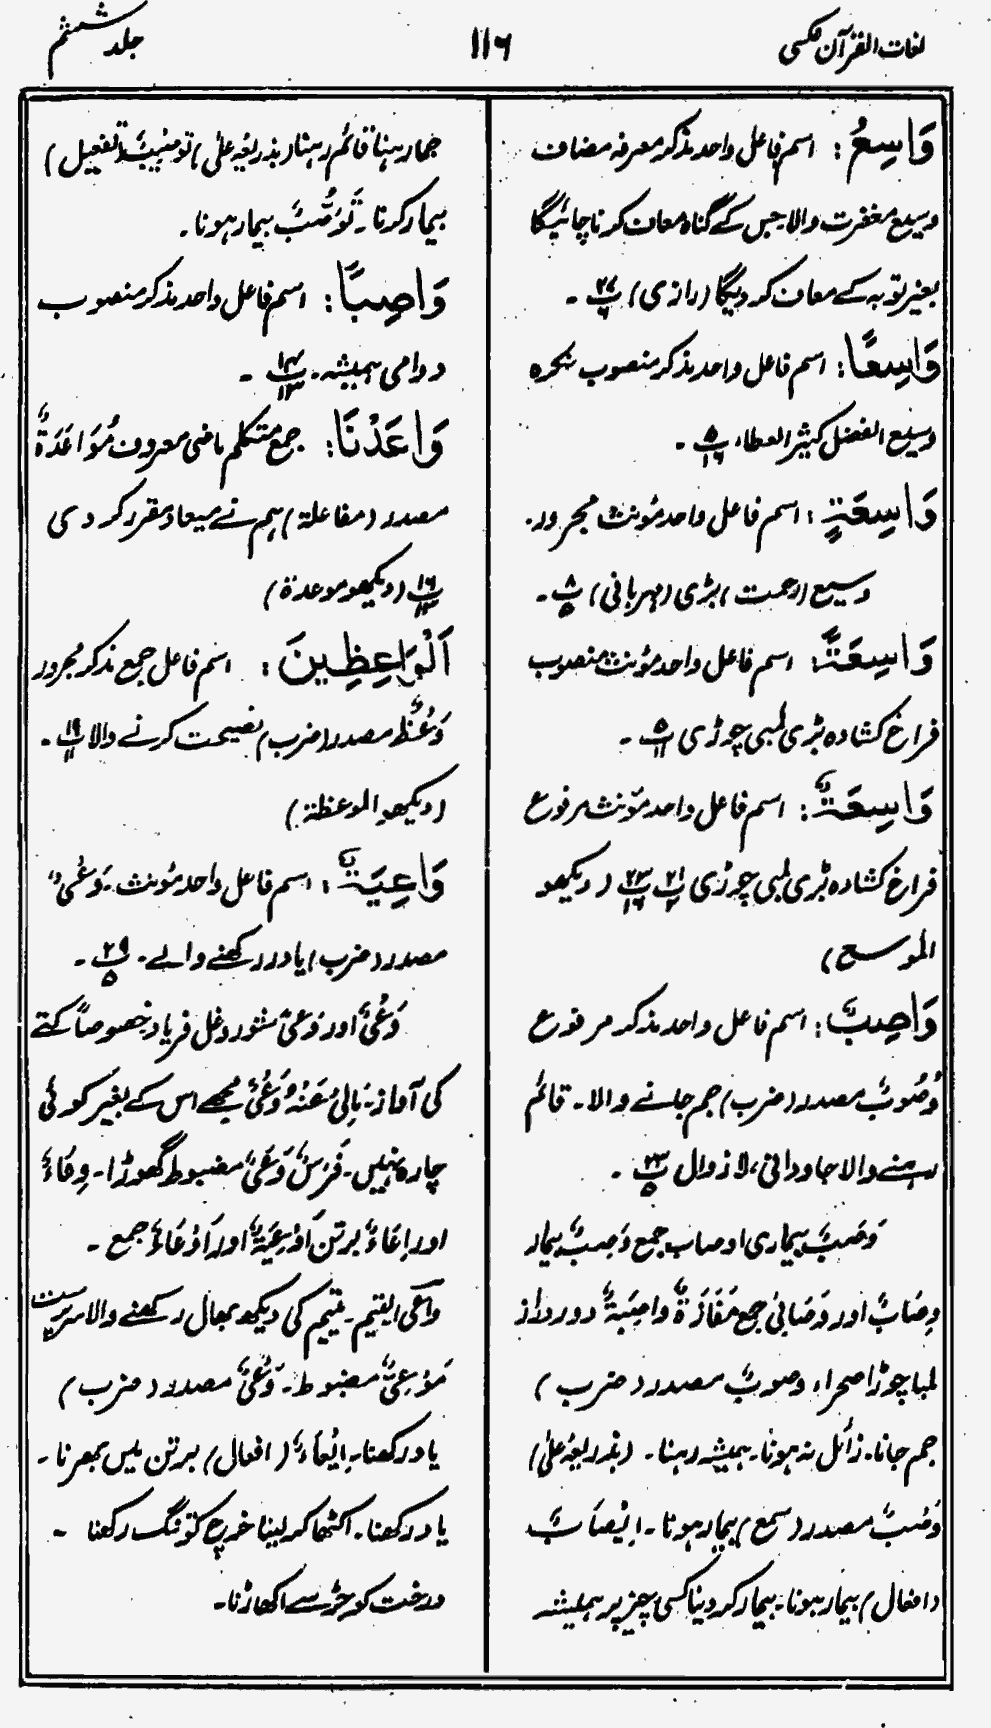 لغات القرآن عکسی
۱۱۶
جلد ششم
وَاسِعُ: اسم فاعل واحد مذکر معرفہ مضاف
وسیع مغفرت والا۔ جس کے گناہ معاف کرنا چاہیگا
بغیر توبہ کے معاف کر دیگا (رازی) پ ۲۷/۶ ۔
وَاسِعًا: اسم فاعل واحد مذکر منصوب نکرہ
وسیع الفضل کثیر العطاء پ ۵/۱۶ ۔
وَاسِعَةٍ: اسم فاعل واحد مؤنث مجرور۔
وسیع (رحمت) بڑی (مہربانی) پ ۸/۵ ۔
وَاسِعَةً: اسم فاعل واحد مؤنث منصوب
فراخ کشادہ بڑی لمبی چوڑی پ ۵/۱۱ ۔
وَاسِعَةٌ: اسم فاعل واحد مؤنث مرفوع
فراخ کشادہ بڑی لمبی چوڑی پ ۲۱/۲ پ ۲۳/۱۶ (دیکھو
الموسع)
وَاصِبٌ: اسم فاعل واحد مذکر مرفوع
وُصُوبٌ مصدر (ضرب) جم جانے والا۔ قائم
رہنے والا جاودانی، لازوال پ ۲۳/۵ ۔
وَصَبٌ بیماری اوصاب جمع وَصِبٌ بیمار
وِصَابٌ اور وَصَابیٰ جمع مَفَازَةٌ واصِبَةٌ دور دراز
لمبا چوڑا صحراء وصوبٌ مصدر (ضرب)
جم جانا۔ زائل نہ ہونا۔ ہمیشہ رہنا۔ (بذریعہ علیٰ)
وَصَبٌ مصدر (سمع) بیمار ہونا۔ اِیْصَابٌ
(افعال) بیمار ہونا۔ بیمار کر دینا کسی چیز پر ہمیشہ
جما رہنا قائم رہنا (بذریعہ علیٰ) توصیبٌ (تفعیل)
بیمار کرنا۔ تَوَصُّبٌ بیمار ہونا۔
وَاصِبًا: اسم فاعل واحد مذکر منصوب
دوامی ہمیشہ۔ پ ۱۴/۱۳ ۔
وَاعَدْنَا: جمع متکلم ماضی معروف مُوَاعَدَةٌ
مصدر (مفاعلة) ہم نے میعاد مقرر کر دی
پ ۱۶/۱۳ (دیکھو موعدة)
اَلْوَاعِظِینَ: اسم فاعل جمع مذکر مجرور
وَعْظٌ مصدر (ضرب) نصیحت کرنے والا پ ۱۹/۱۱ ۔
(دیکھو الموعظة)
وَاعِیَةٌ: اسم فاعل واحد مؤنث۔ وَعْیٌ
مصدر (ضرب) یاد رکھنے والے۔ پ ۲۹/۵ ۔
وَعْیٌ اور وَعیً شور و غل فریاد خصوصاً کتے
کی آواز۔ مَالِیْ عَنْہُ وَعْیٌ مجھے اس کے بغیر کوئی
چارہ نہیں۔ فَرَسٌ وَعیً مضبوط گھوڑا۔ وِعَاءٌ
اور اِعَاءٌ برتن اَوْعِیَةٌ اور اَوْعَاءٌ جمع ۔
واعی الیتیم۔ یتیم کی دیکھ بھال رکھنے والا سرپرست
مَوْعِیٌّ مضبوط۔ وَعْیٌ مصدر (ضرب)
یاد رکھنا۔ اِیْعَاءٌ (افعال) برتن میں بھرنا ۔
یاد رکھنا۔ اکٹھا کر لینا خرچ کو تنگ رکھنا ۔
درخت کو جڑ سے اکھاڑنا۔